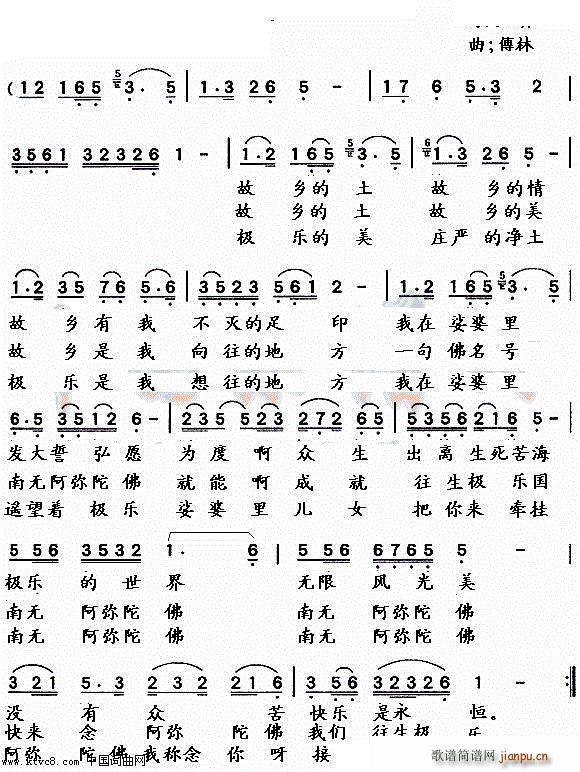 曲；傅林
(12 165 3. 5 | 1.3 26 5 - | 17 6 5.3 2
3561 32326 1 - | 1.2 165 3. 5 | 1.3 265 -
故乡的土 故乡的情
故乡的土 故乡的美
极乐的美 庄严的净土
1.2 35 76 5.6 | 3523 561 2 - | 1.2 165 3. 5
故乡有我 不灭的足印 我在娑婆里
故乡是我 向往的地方 一句佛名号
极乐是我 想往的地方 我在娑婆里
6.5 3512 6 - | 235 523 272 65 | 5356 2216 5 -
发大誓弘愿 为度啊众生 出离生死苦海
南无阿弥陀佛 就能啊成就 往生极乐国
遥望着极乐 娑婆里儿女 把你来牵挂
5 56 3532 1. 6 | 5 56 6765 5 -
极乐的世界 无限风光美
南无阿弥陀佛 南无阿弥陀佛
南无阿弥陀佛 南无阿弥陀佛
3 21 5.3 232 216 | 3 56 32326 1 - :||
没有众苦快乐是永恒。
快来念阿弥陀佛我们往生极乐
阿弥陀佛我称念你呀接
www.ktvc8.com 中国词曲网
歌谱简谱网
jianpu.cn